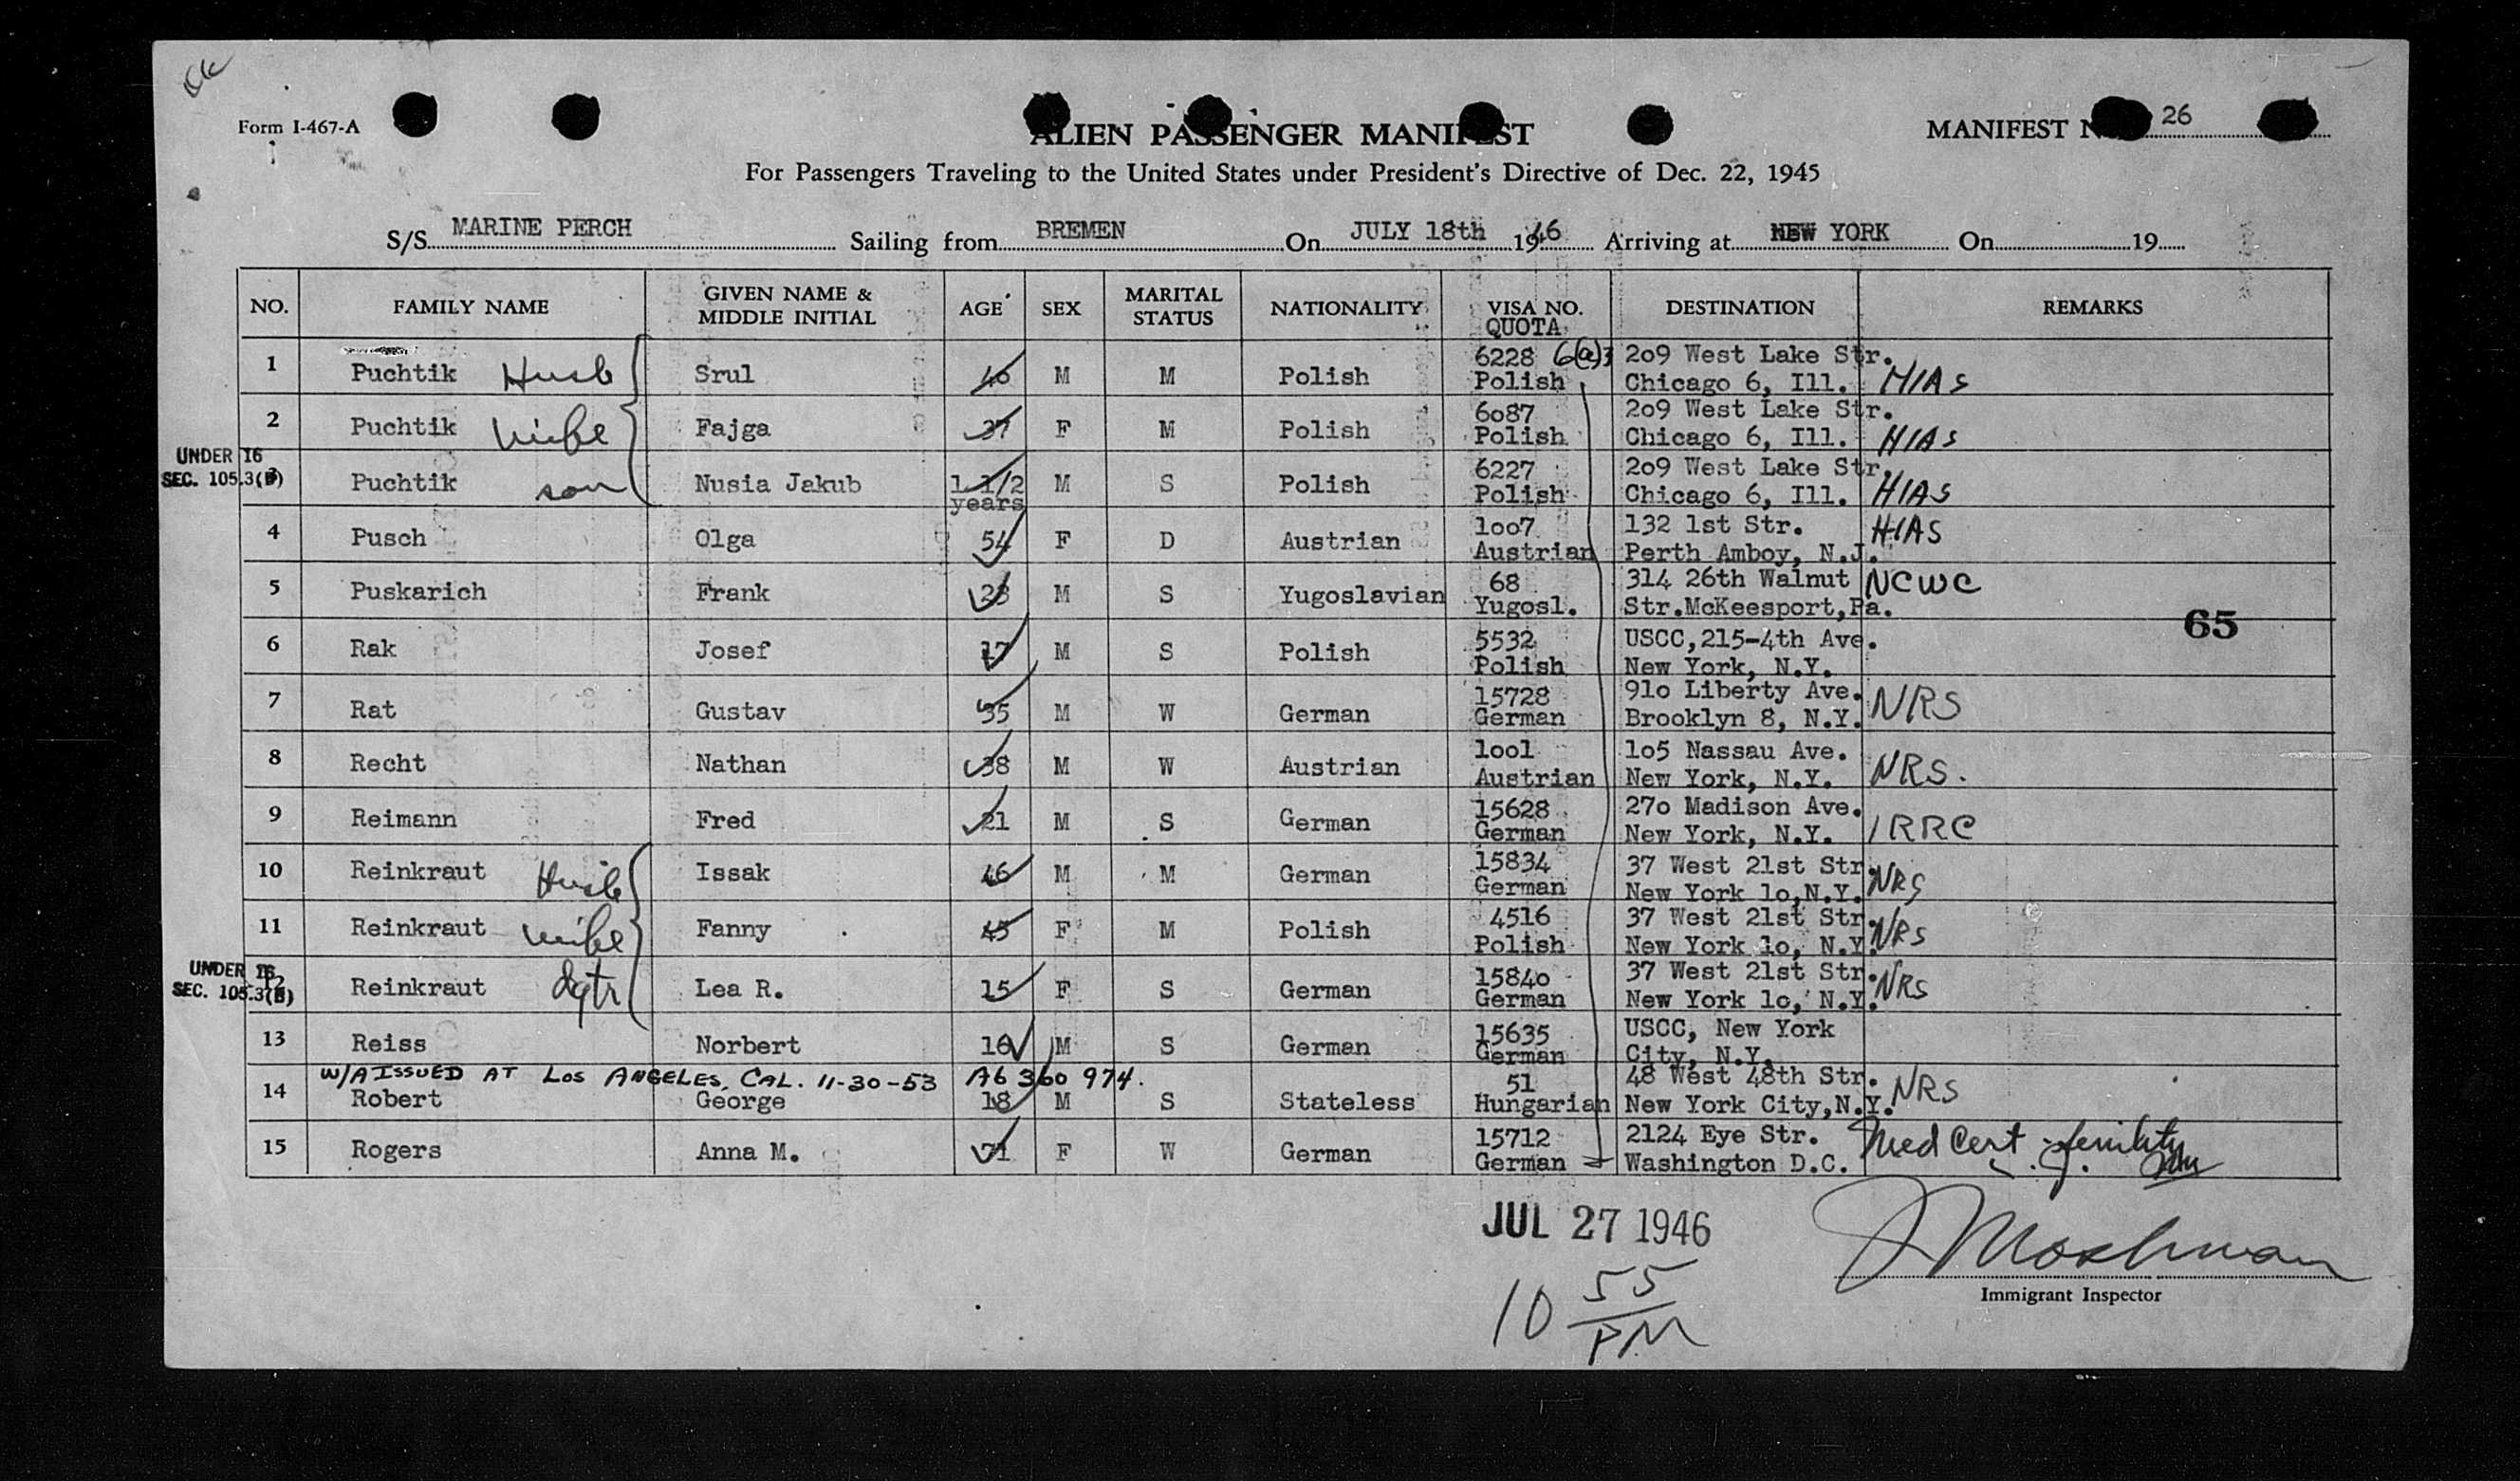 Form I-467-A
ALIEN PASSENGER MANIFEST
MANIFEST N 26
For Passengers Traveling to the United States under President's Directive of Dec. 22, 1945
S/S MARINE PERCH Sailing from BREMEN On JULY 18th 1946 Arriving at NEW YORK On 19
NO. FAMILY NAME GIVEN NAME & MIDDLE INITIAL AGE SEX MARITAL STATUS NATIONALITY VISA NO. QUOTA DESTINATION REMARKS
1 Puchtik Husb Srul 46 M M Polish 6228 6(a)3 209 West Lake Str.
Polish Chicago 6, Ill. HIAS
2 Puchtik wife Fajga 37 F M Polish 6087 209 West Lake Str.
Polish Chicago 6, Ill. HIAS
UNDER 16
SEC. 105.3(B)
3 Puchtik son Nusia Jakub 1 1/2 years M S Polish 6227 209 West Lake Str.
Polish Chicago 6, Ill. HIAS
4 Pusch Olga 54 F D Austrian 1007 132 1st Str. HIAS
Austrian Perth Amboy, N.J.
5 Puskarich Frank 28 M S Yugoslavian 68 314 26th Walnut NCWC
Yugosl. Str.McKeesport,Pa.
65
6 Rak Josef 17 M S Polish 5532 USCC,215-4th Ave.
Polish New York, N.Y.
7 Rat Gustav 35 M W German 15728 910 Liberty Ave. NRS
German Brooklyn 8, N.Y.
8 Recht Nathan 38 M W Austrian 1001 105 Nassau Ave.
Austrian New York, N.Y. NRS.
9 Reimann Fred 21 M S German 15628 270 Madison Ave.
German New York, N.Y. IRRC
10 Reinkraut Husb Issak 46 M M German 15834 37 West 21st Str.
German New York 10,N.Y. NRS
11 Reinkraut wife Fanny 45 F M Polish 4516 37 West 21st Str. NRS
Polish New York 10, N.Y.
UNDER 16
SEC. 105.3(B)
12 Reinkraut dgtr Lea R. 15 F S German 15840 37 West 21st Str. NRS
German New York 10, N.Y.
13 Reiss Norbert 16 M S German 15635 USCC, New York
German City, N.Y.
W/A ISSUED AT LOS ANGELES, CAL. 11-30-53 A6 360 974.
14 Robert George 18 M S Stateless 51 48 West 48th Str. NRS
Hungarian New York City,N.Y.
15 Rogers Anna M. 71 F W German 15712 2124 Eye Str. Med Cert. senility
German Washington D.C.
JUL 27 1946
10 55 PM
Immigrant Inspector